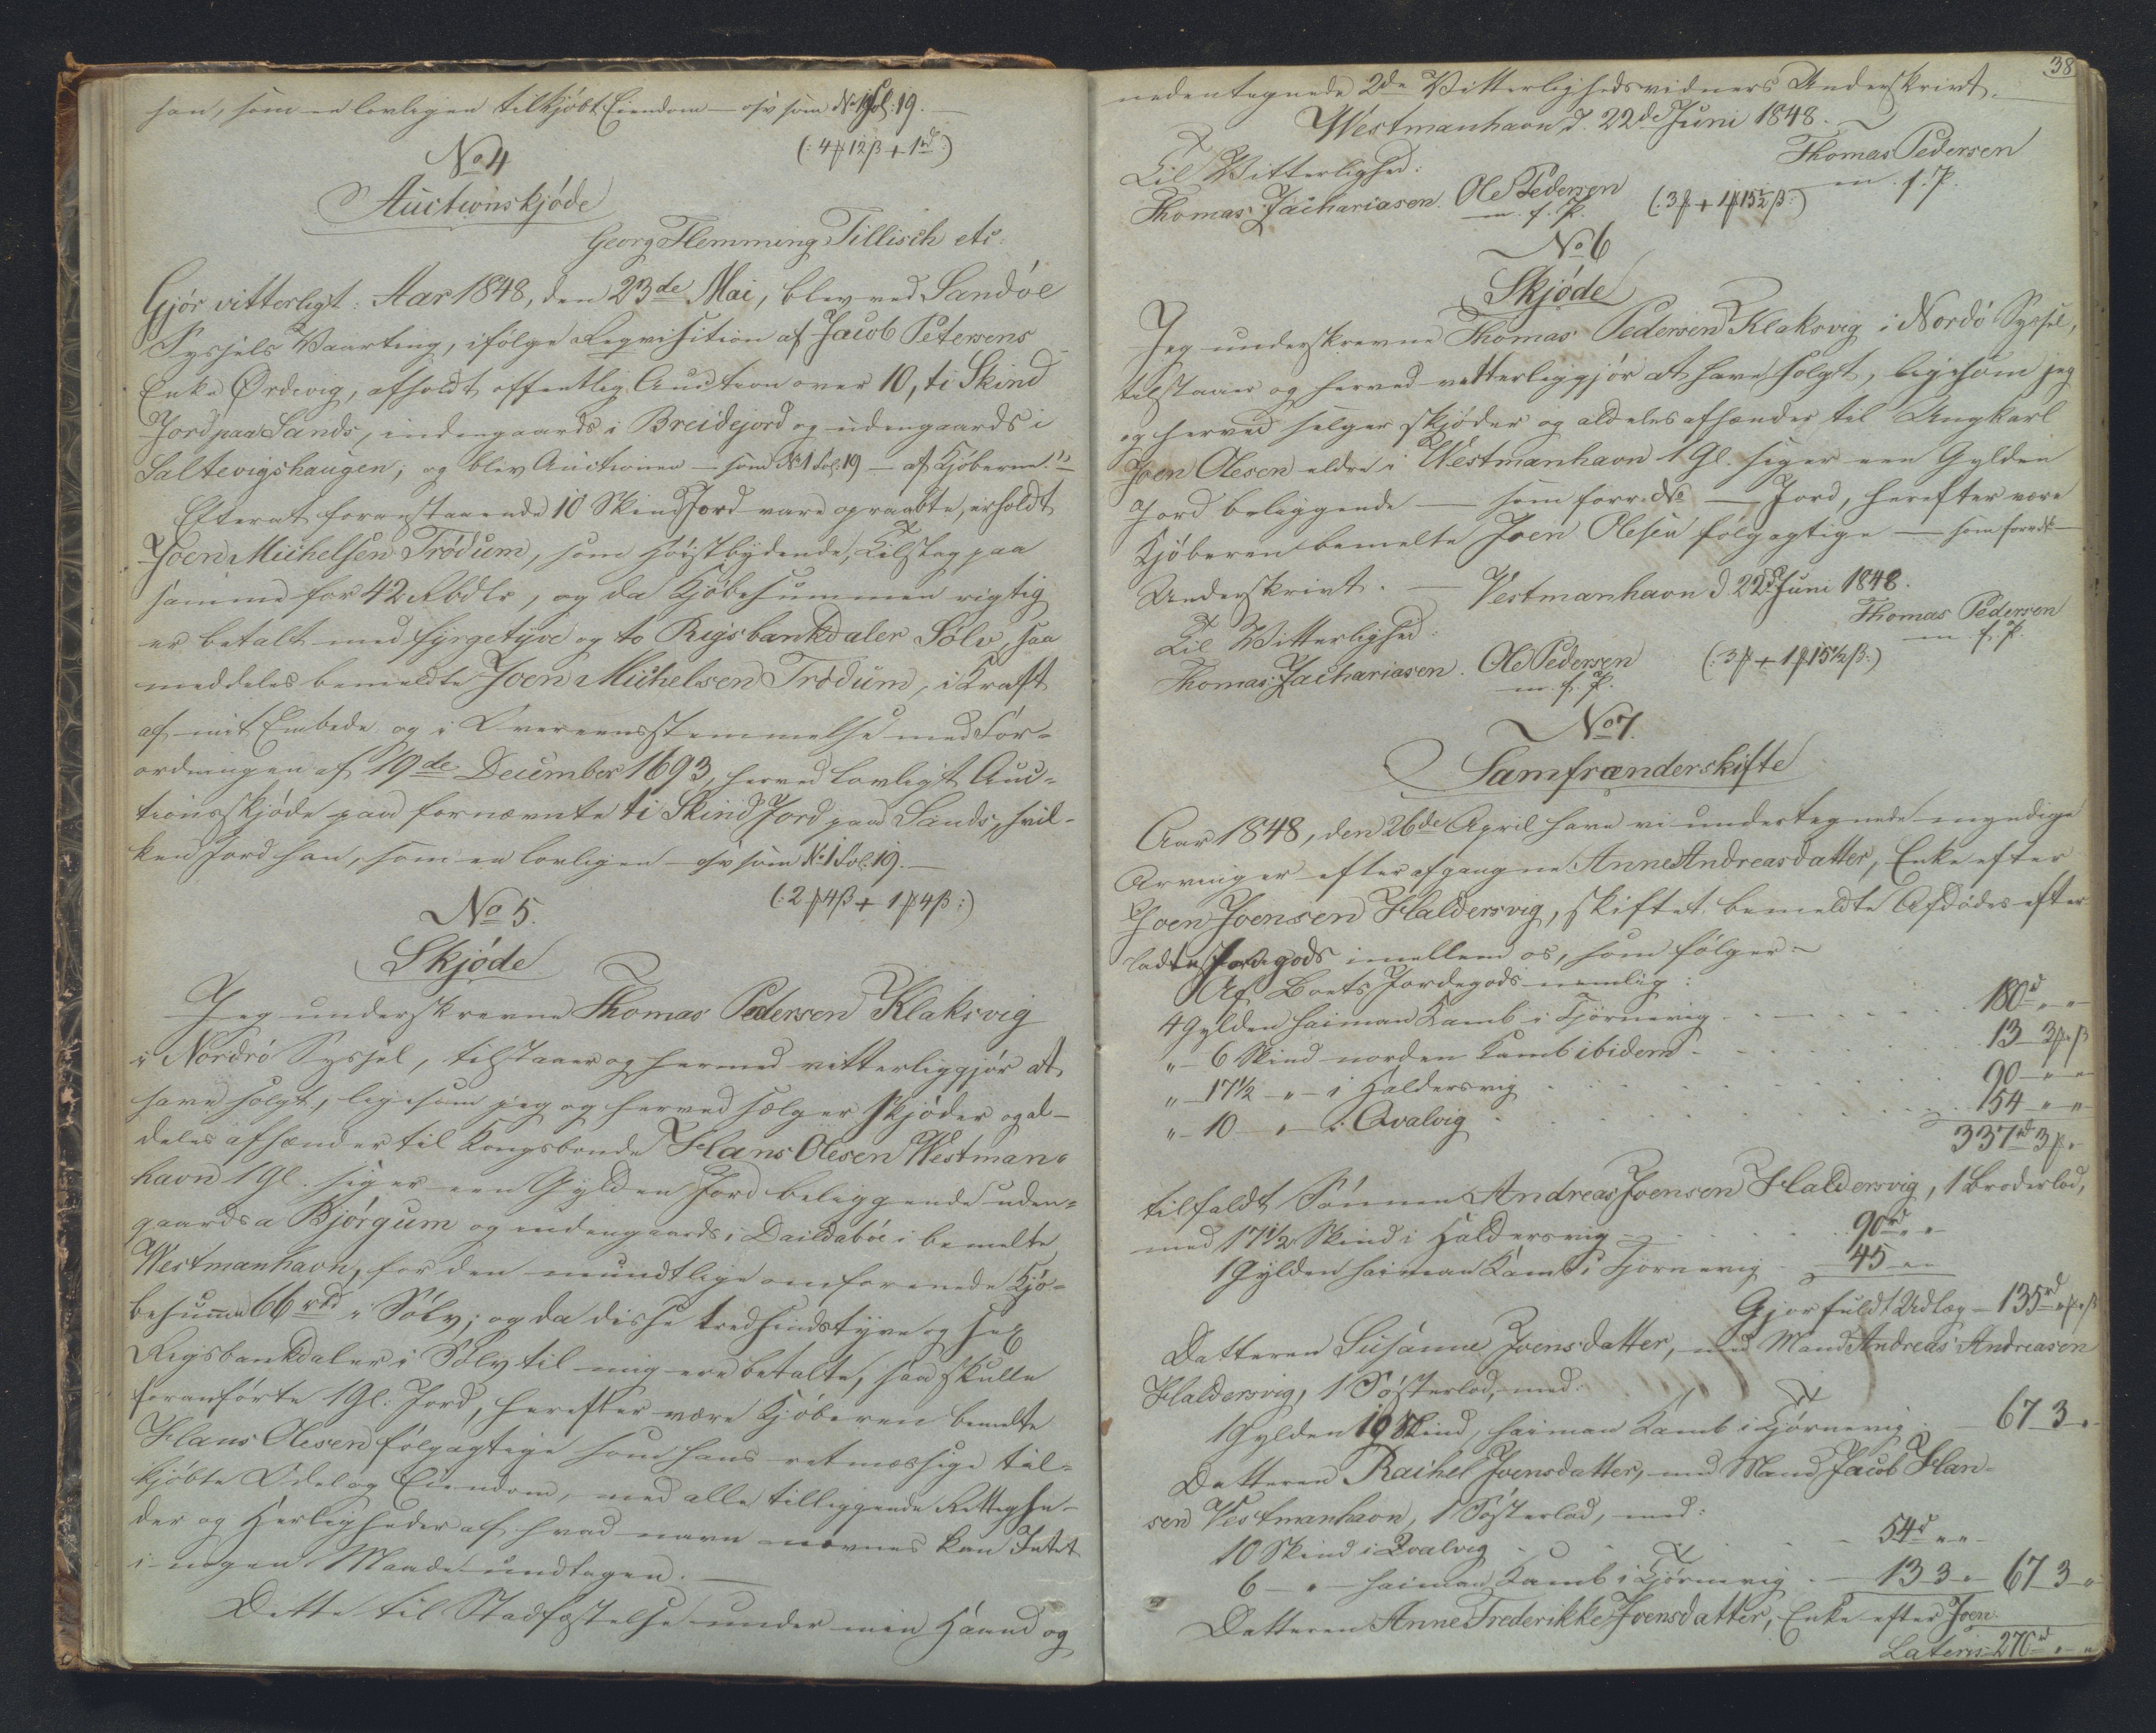 han, som en lovligen tilkjøbt Eiendom – osv som No 1 Fol: 19. –
(: 4 ß 12 β + 1 rd :)
No 4
Auctionskjøde
Georg Flemming Tillisch etc:
Gjør vitterligt: Aar 1848, den 23de Mai, blev ved Sandøe
Syssels Vaarting, ifølge Reqvisition af Jacob Petersens
Enke Ørdevig, afholdt offentlig Auction over 10, ti Skind
Jord paa Sands, indengaards i Breidejord og udengaards i
Saltevigshaugen; og blev Auctionen – som No 1 Fol: 19 – af Kjøberne. "
Efterat foranstaaende 10 Skind Jord vare opraabte, erholdt
Joen Michelsen Trödum, som høistbydende, Tilslag paa
samme for 42 Rbdlr, og da Kjøbesummen rigtig
er betalt med fyrgetyve og to Rigsbankdaler Sølv, saa
meddeles bemeldte Joen Michelsen Trödum, i Kraft
af mit Embede og i Overeensstemmelse med For-
ordningen af 19de December 1693, herved lovligt Auc-
tionsskjøde paa fornævnte ti Skind Jord paa Sands, hvil-
ken Jord han, som en lovligen – osv som No 1 Fol. 19. –
(: 2 ß 4 β + 1 ß 4 β :)
No 5.
Skjøde
Jeg underskrevne Thomas Pedersen Klaksvig
i Nordrö Syssel, tilstaaer og hermed vitterliggjør at
have solgt, ligesom jeg og herved sælger skjøder og al-
deles afhænder til Kongsbonde Hans Olesen Westman-
havn 1 Gl. siger een Gylden Jord beliggende uden-
gaards a Bjørgum og indengaards i Daildabøe i bemelte
Westmanhavn, for den mundtlige omforenede Kjø-
besum̅e 66 rbd i Sølv; og da disse tredsindstyve og sex
Rigsbankdaler i Sølv til mig ere betalte, saa skulle
foranførte 1 Gl. Jord, herefter være Kjøberen bemelte
Hans Olesen følgagtige som hans retmæssige til-
kjøbte Odel og Eiendom, med alle tilliggende Rettighe-
der og Herligheder af hvad navn nævnes kan Intet
i nogen Maade undtagen. –
Dette til Stadfæstelse under min Haand og
38
nedentegnede 2de Vitterlighedsvidners Underskrivt.
Westmanhavn d. 22de Juni 1848.
Til Vitterlighed:
Thomas Pedersen
m. f. P.
Thomas Zachariasen. Ole Pedersen
m. f. P.
(: 3 ß + 1 ß 15½ β :)
No 6
Skjøde
Jeg underskrevne Thomas Pedersen Klaksvig i Nordö Syssel,
tilstaaer og herved vitterliggjør at have solgt, ligesom jeg
og herved selger skjøder og aldeles afhænder til Ungkarl
Joen Olesen eldre i Westmanhavn 1 Gl. siger een Gylden
Jord beliggende — som forr. No — Jord, herefter være
Kjøberen bemelte Joen Olesen følgagtige — som forr. No —
Underskrivt. – Vestmanhavn d 22de Juni 1848.
Til Vitterlighed:
Thomas Pedersen
m. f. P.
Thomas Zachariasen. Ole Pedersen
m. f. P.
(: 3 ß + 1 ß 15½ β :)
No 7.
Samfrænderskifte
Aar 1848, den 26de April have vi undertegnede myndige
Arvinger efter afgangne Anne Andreasdatter, Enke efter
Joen Joensen Haldersvig, skiftet bemeldte Afdødes efter-
ladte Jordegods imellem os, som følger:
Af Boets Jordegods nemlig:
4 Gylden haiman Kamb i Tjörnevig . . . 180 rd " "
" – 6 Skind norden Kamb ibidem . . . 13 – 3 ß " β
" – 17½ – " – i Haldersvig . . . 90 – " "
" – 10 – " – i Qvalvig . . . 154 – " "
337 rd 3 ß "
tilfaldt Sønnen Andreas Joensen Haldersvig, 1 Broderlod,
med 17½ Skind i Haldersvig . . . 90 rd " "
1 Gylden haiman Kamb i Tjörnevig . . . 45 " "
Gjør fuldt Udlæg – 135 rd " ß " β
Datteren Susanne Joensdatter, med Mand Andreas Andreasen
Haldersvig, 1 Søsterlod, med:
1 Gylden 10 Skind, haiman Kamb i Tjørnevig . – 67 – 3 "
Datteren Rachel Joensdatter, med Mand Jacob Han-
sen Vestmanhavn, 1 Søsterlod, med:
10 Skind i Qvalvig . . . 54 rd " "
6 – " – haiman Kamb i Tjørnevig . – 13 3 " 67 – 3 "
Datteren Anne Frederikke Joensdatter, Enke efter Joen
Lateris 270 rd " "